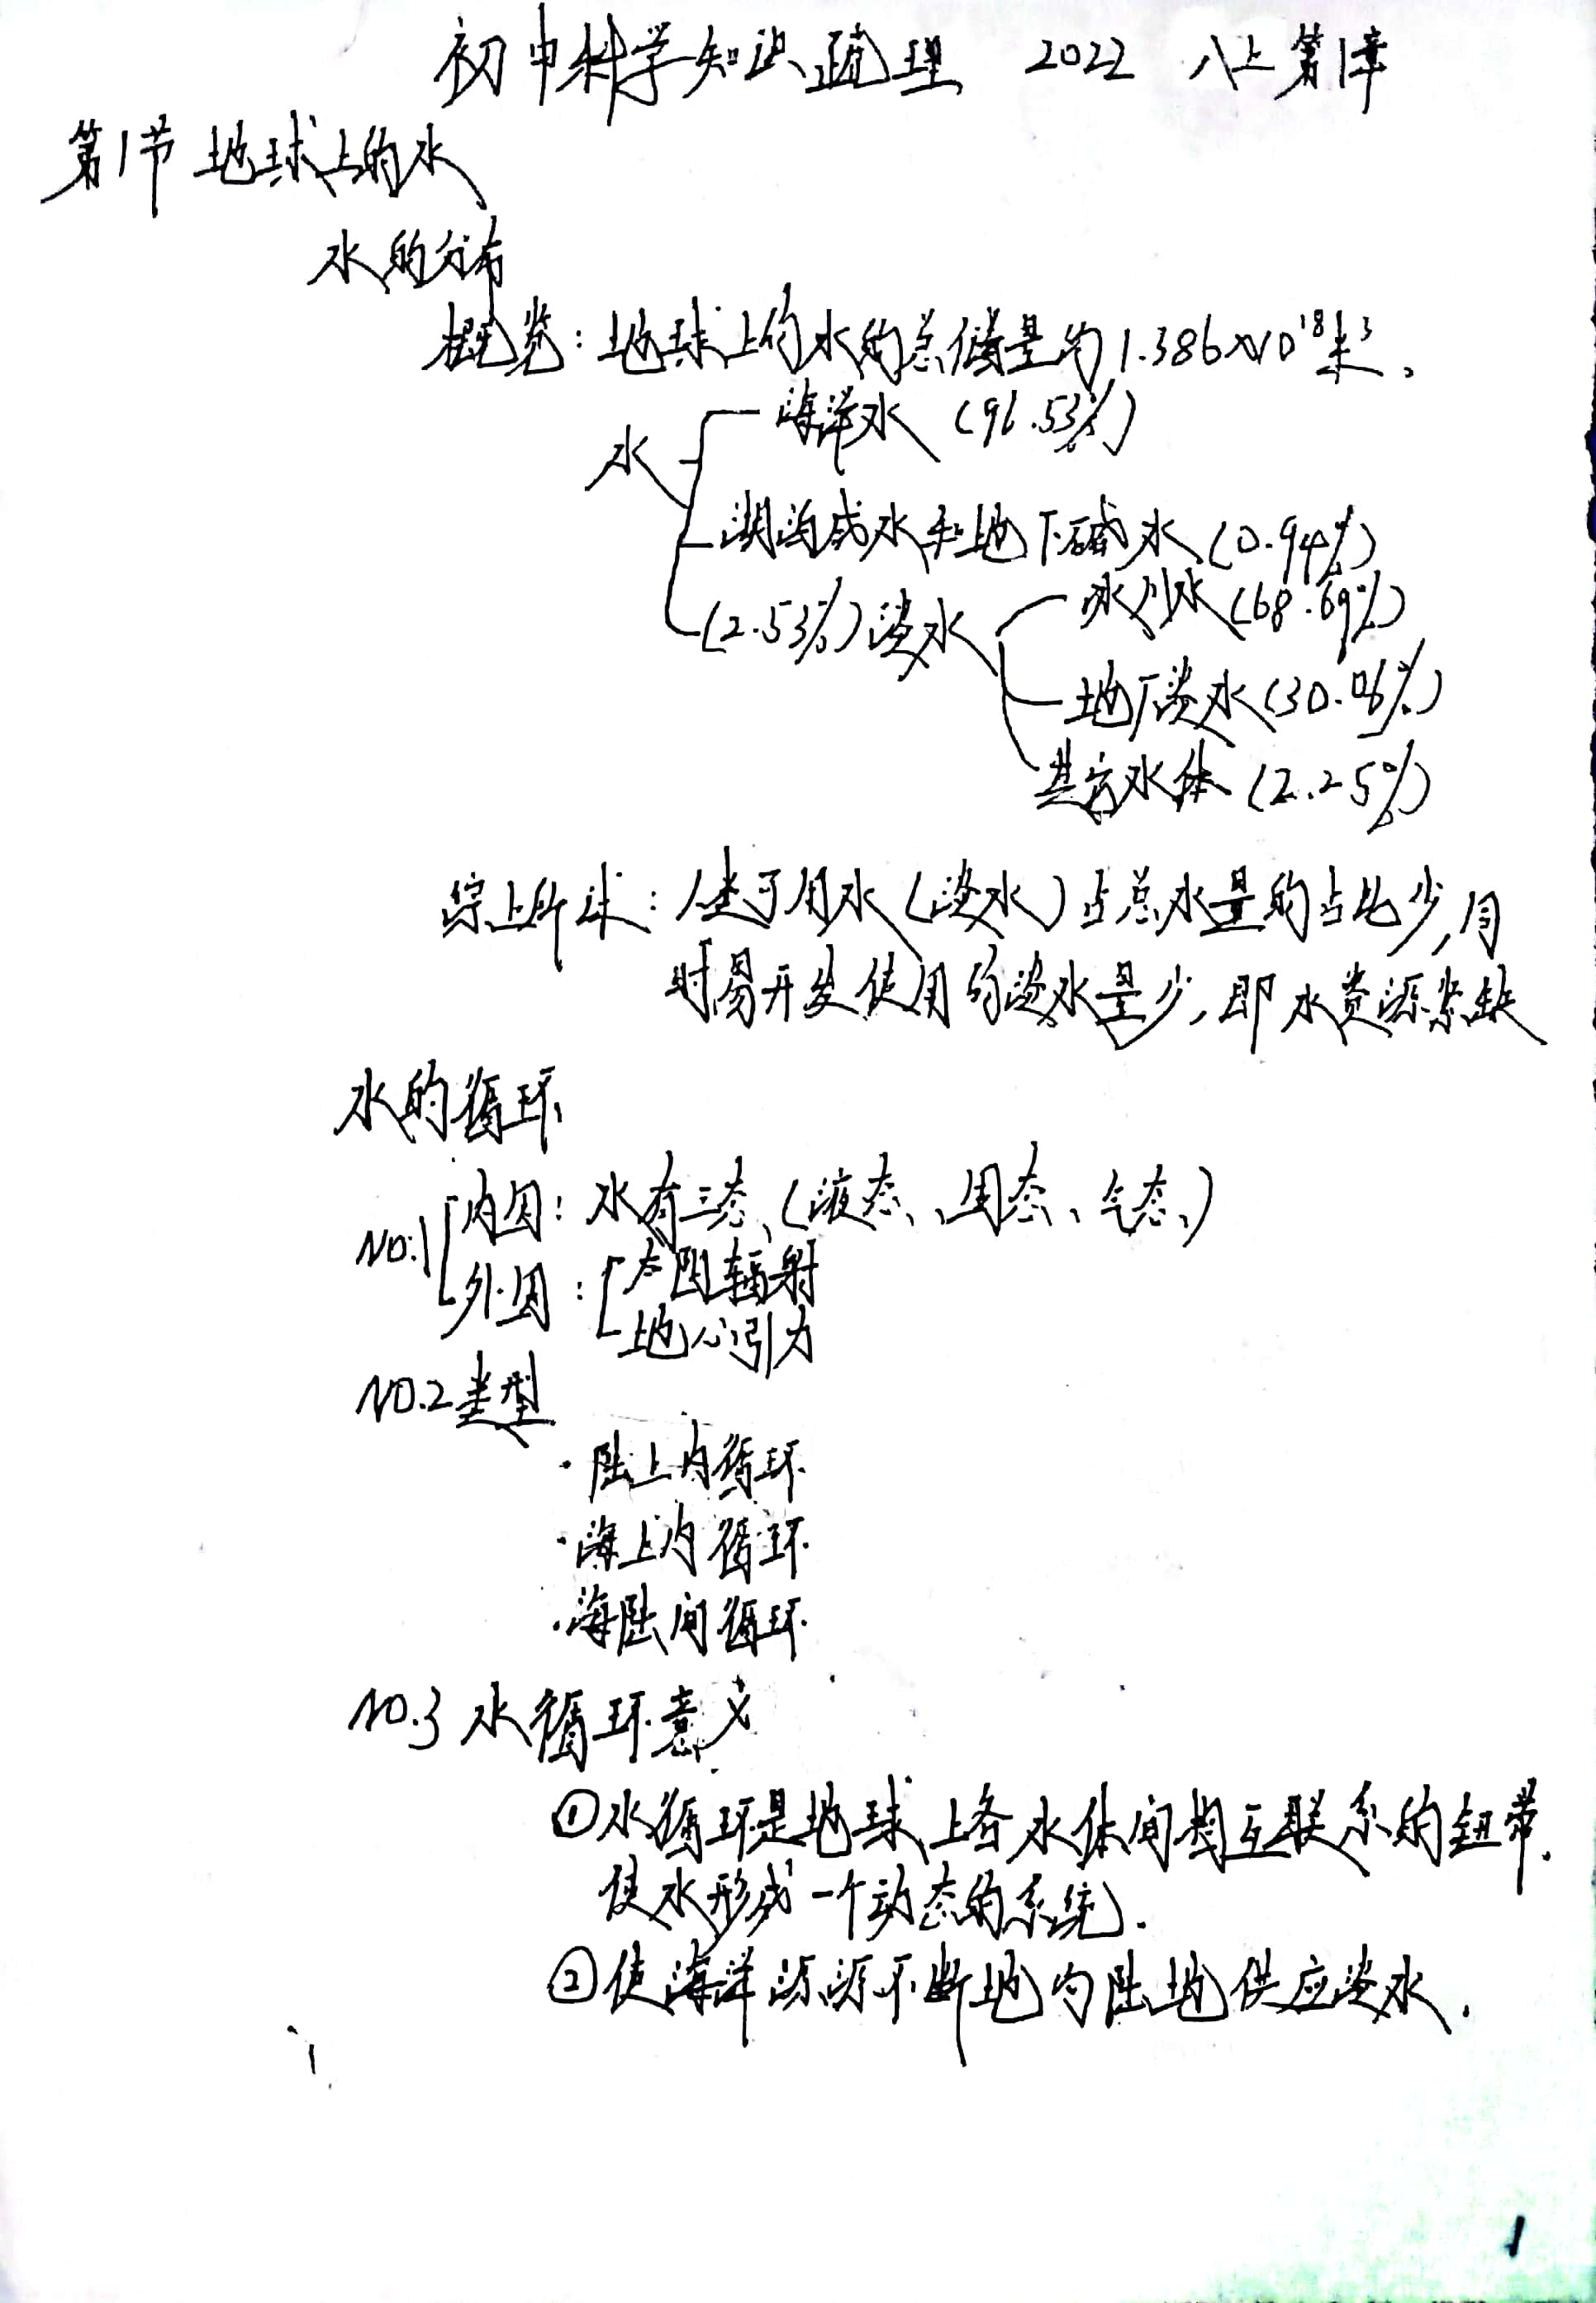 初中科学知识疏理 2022 八上第1章
第1节 地球上的水
水的分布
概览：地球上的水的总储量约1.386×10¹⁸米³。
海洋水（96.53%）
水
湖泊咸水和地下碱水（0.94%）
（2.53%）淡水
冰川水（68.69%）
地下淡水（30.06%）
其它水体（2.25%）
综上所述：人类可用水（淡水）占总水量的占比少，同
时易开发使用的淡水量少，即水资源紧缺
水的循环
NO.1
内因：水有三态（液态、固态、气态）
外因：太阳辐射
地心引力
NO.2类型
·陆上内循环
·海上内循环
·海陆间循环
NO.3 水循环意义
①水循环是地球上各水体间相互联系的纽带.
使水形成一个动态的系统.
②使海洋源源不断地为陆地供应淡水.
1